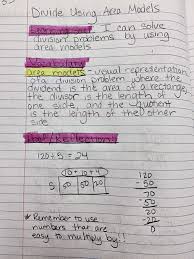 Divide Using Area Models
I can solve
division problems by using
area models
area models - visual representation
of a division problem where the
dividend is the area of a rectangle,
the divisor is the length of
one side, and the quotient
is the length of the other
side
120÷5 = 24
10+10+4
5 50 50 20
120
-50
70
-50
20
-20
0
* Remember to use
numbers that are
easy to multiply by!!